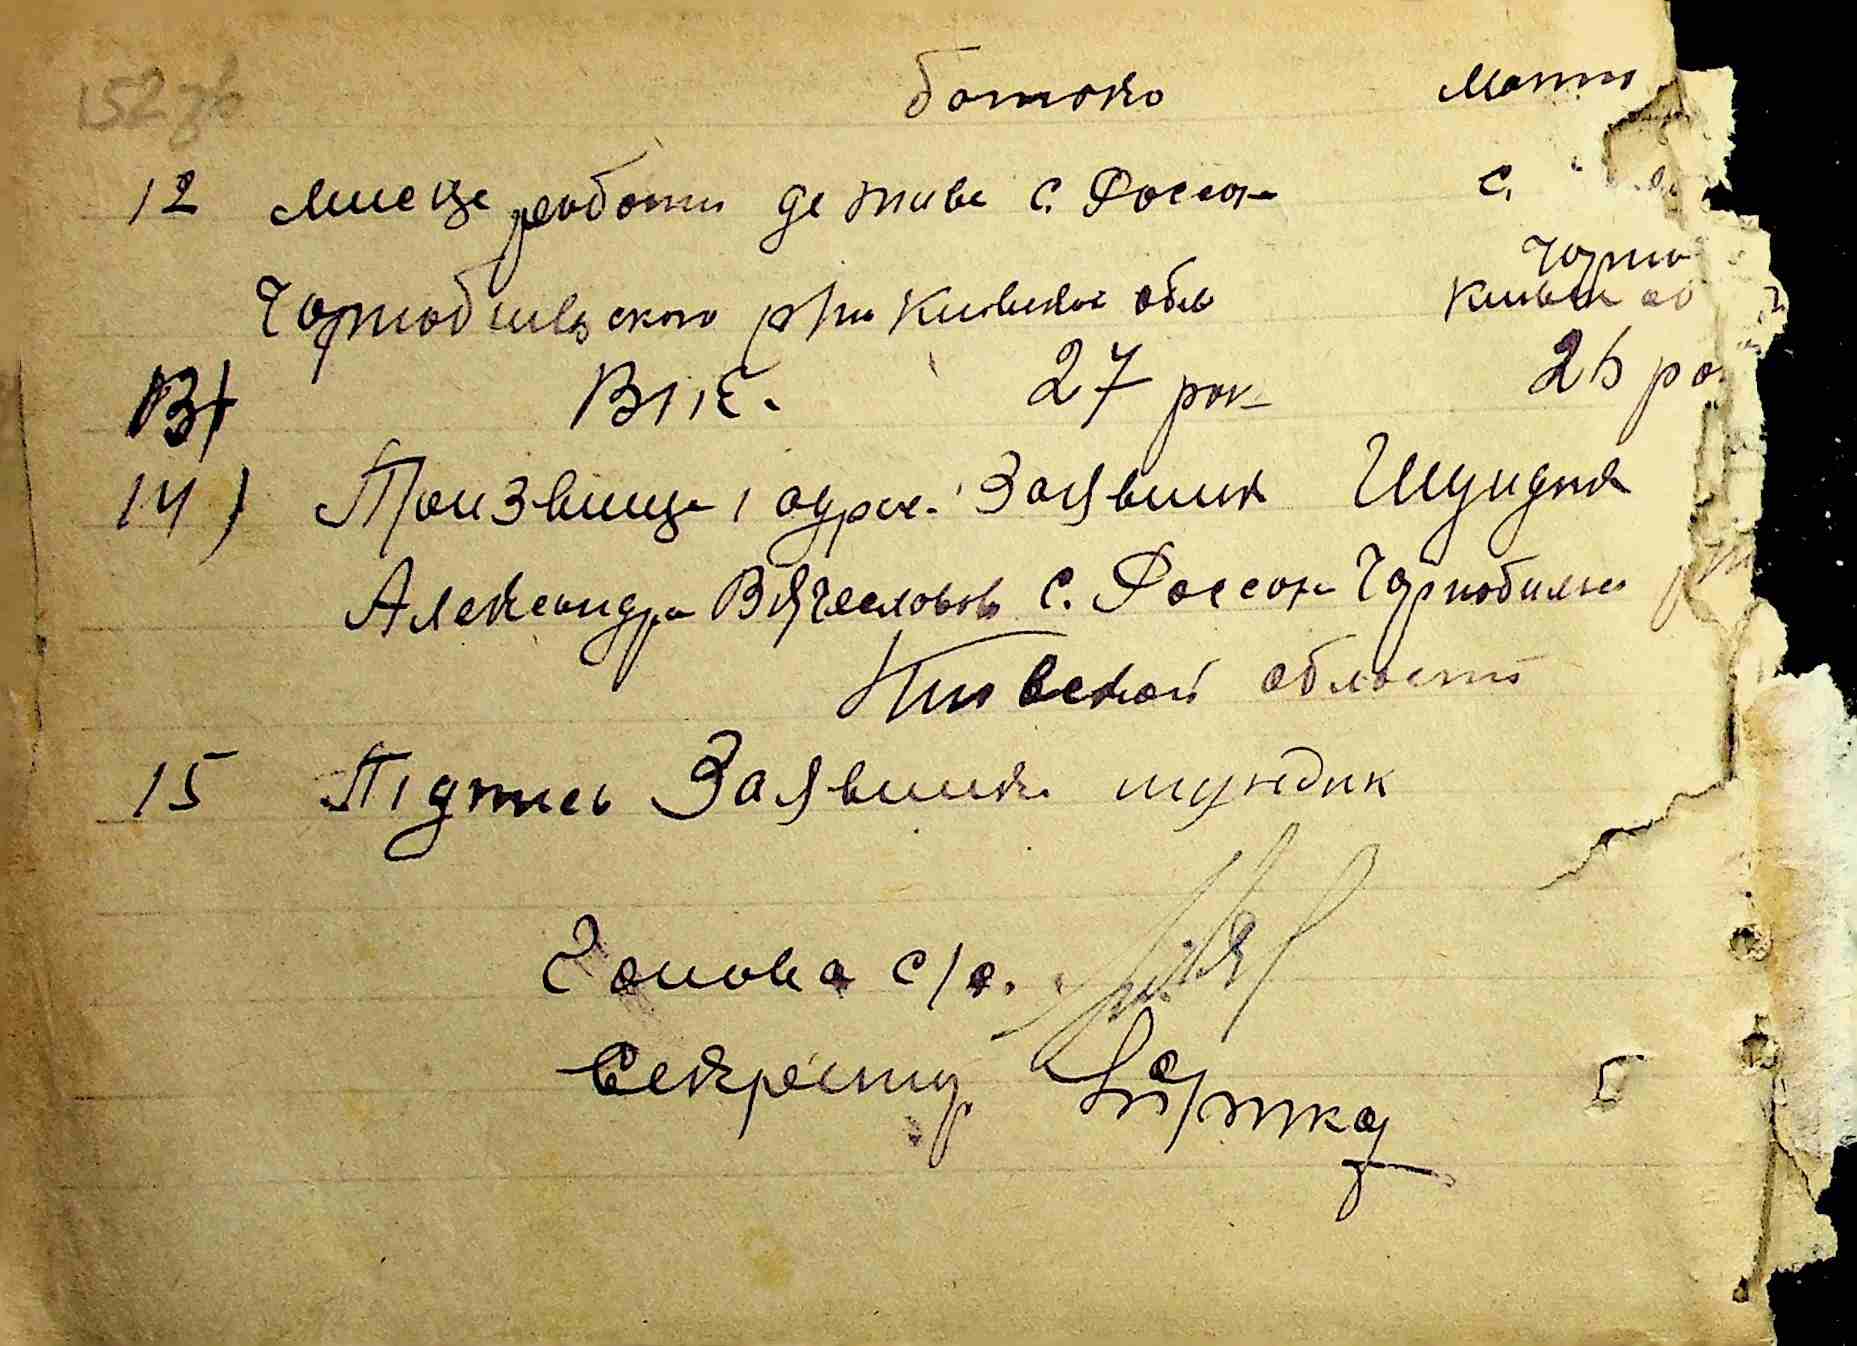 152 зв
батько мати
12 Мисце работи де живе с. Россоха с.
Чорнобильского р/на Киевской обл Чорно
Киевск об
13) Вік. 27 рок 26 ро
14) Призвище і адрес. Заявника Шундик
Александр Вячеславов с. Россоха Чорнобильск
Киевской области
15 Підпись Заявника шундик
Голова с/р.
Секретар